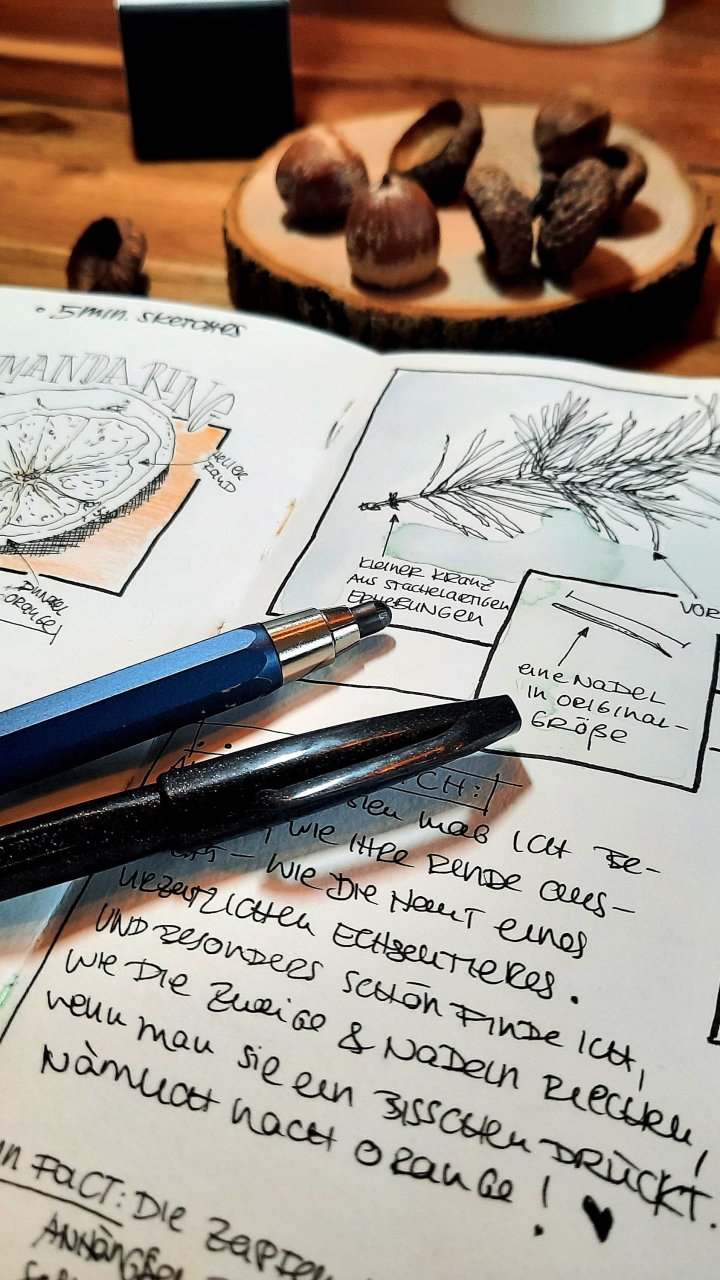 • 5 min. SKETCHES
MANDARINE
HELLER
RAND
DUNKEL
ORANGE
KLEINER KRANZ
AUS STACHELARTIGEN
ERHEBUNGEN
VOR
eine NaDEL
IN ORIGINAL-
GRÖßE
ICH:
mag ICH BE-
, WIE IHRE RINDE aus-
– WIE DIE HauT eines
URZEITLICHEN ECHSENTIERES.
UND BESONDERS SCHÖN FINDE ICH,
WIE DIE ZWEIGE & NADELN RIECHEN,
wenn man sie ein BISSCHEN DRÜCKT.
NÄMLICH nach ORANGE! ♥
FACT: DIE ZAPFEN